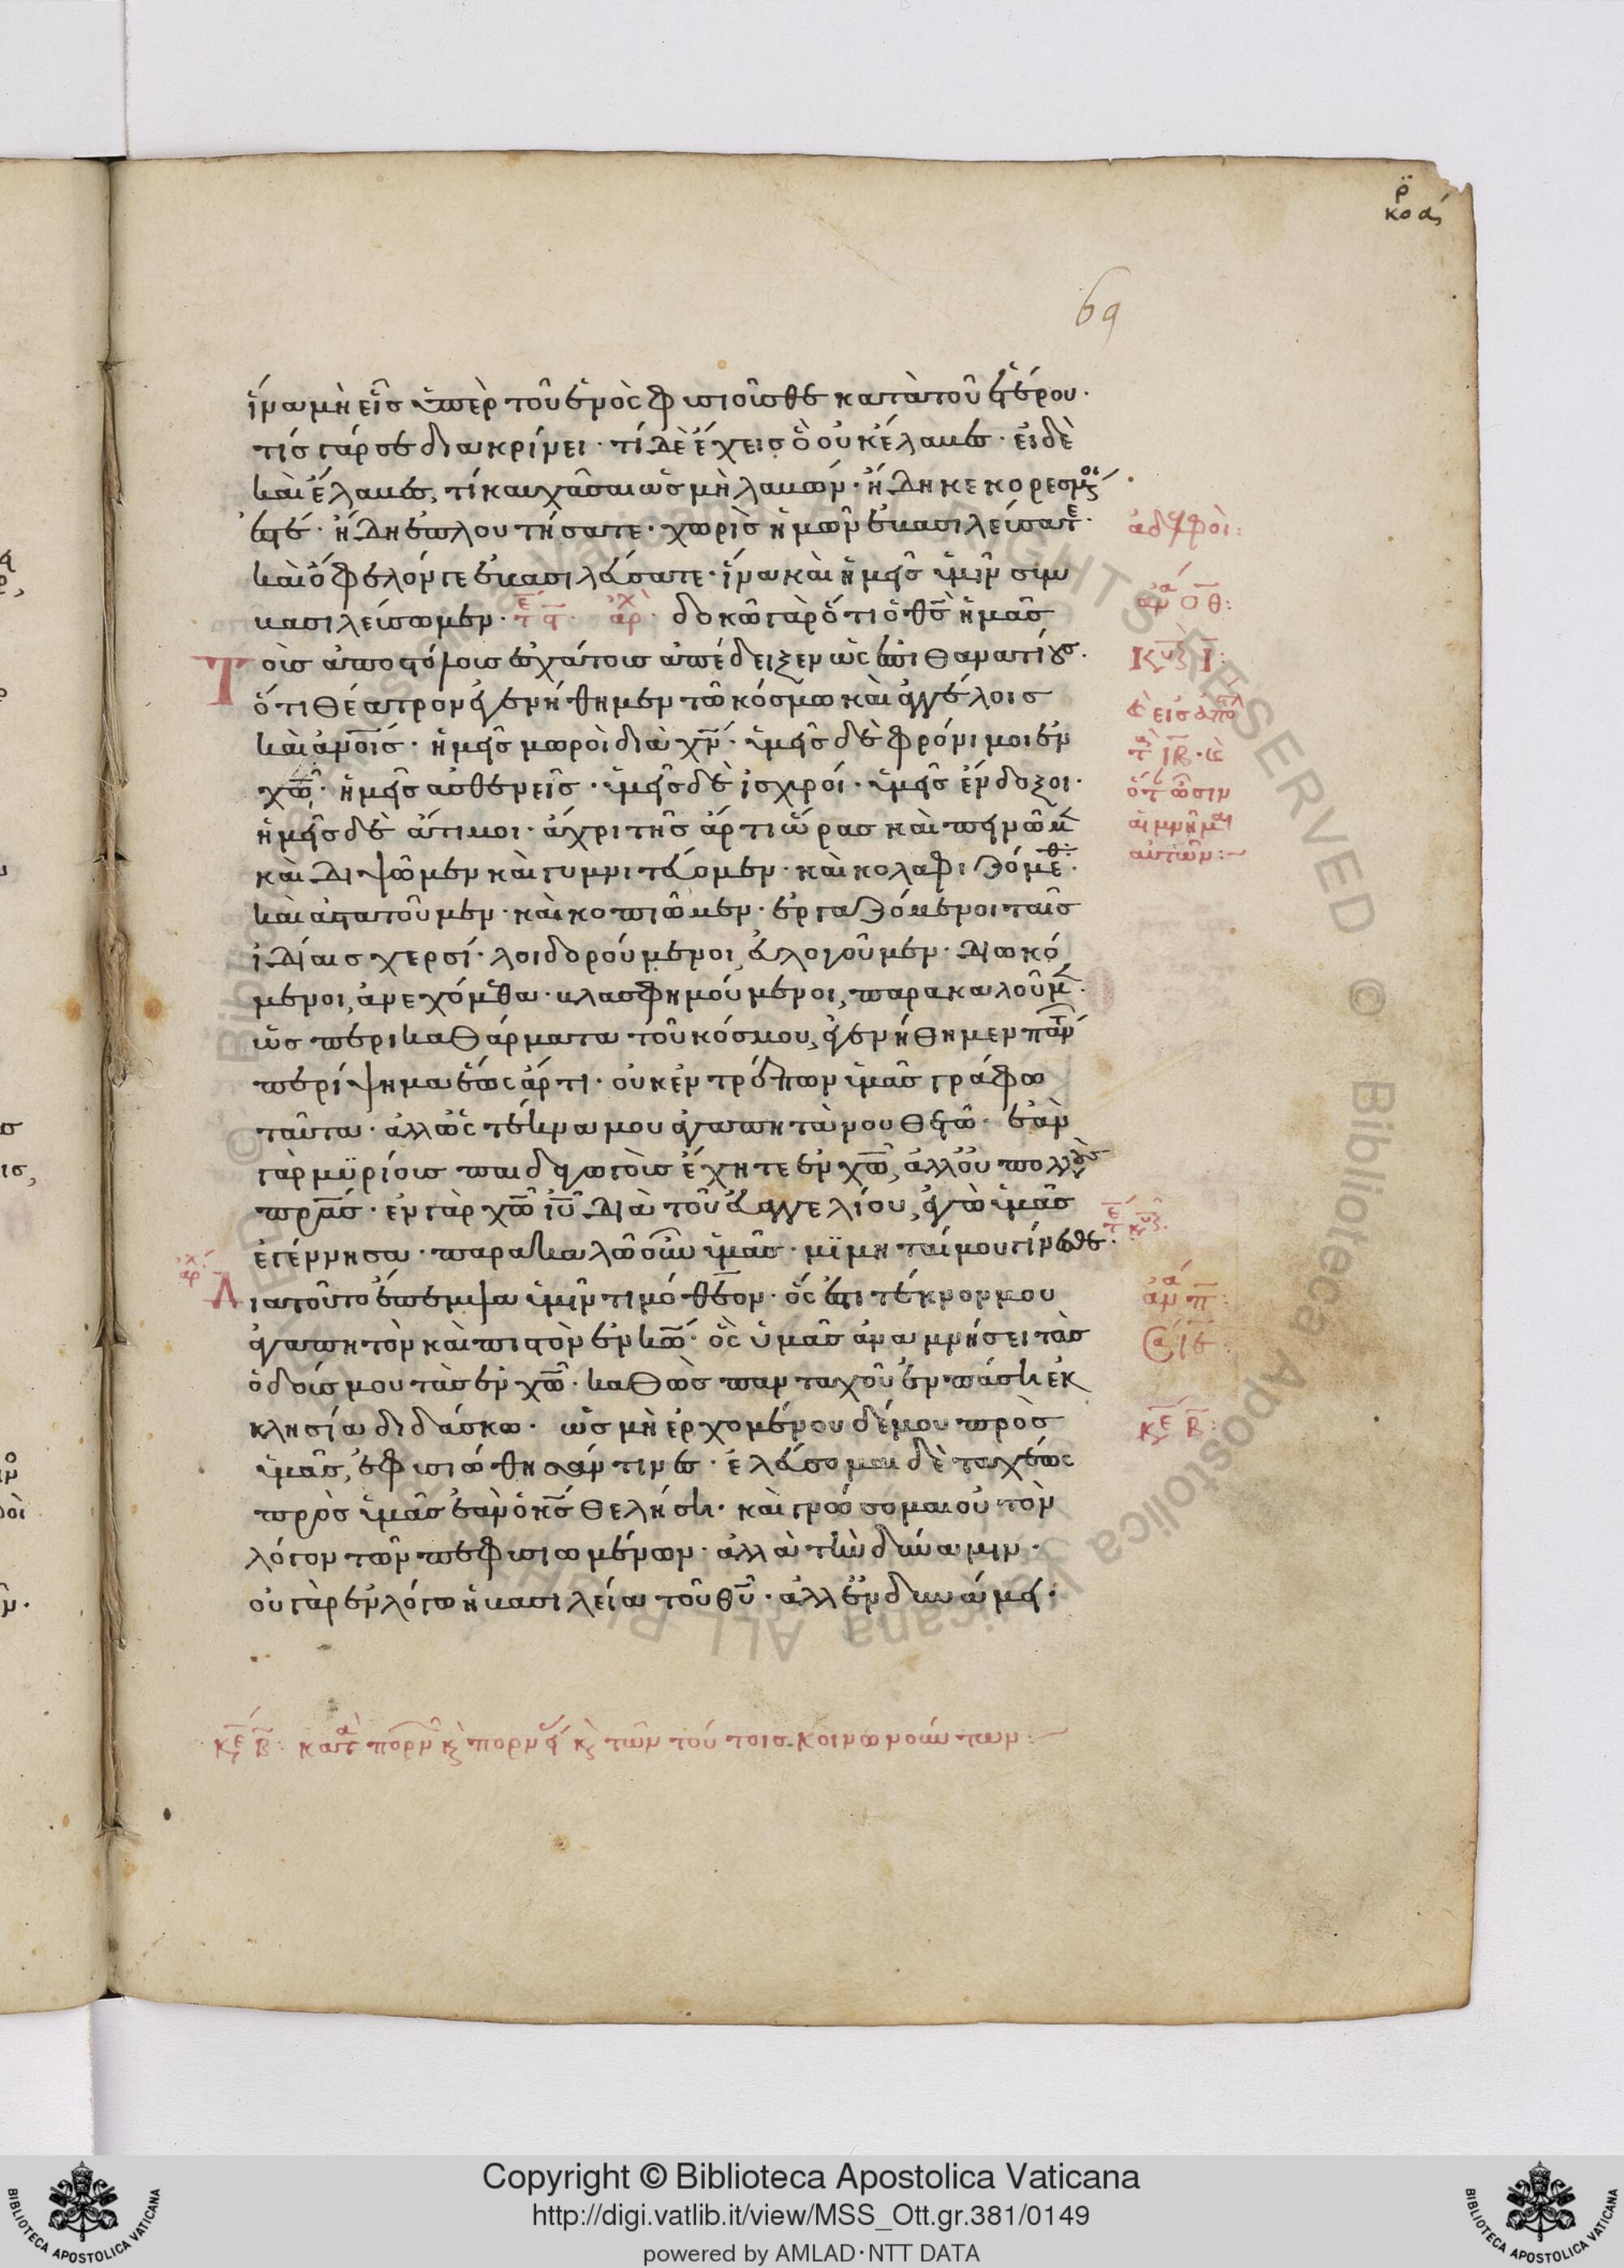 69
ἵνα μὴ εἷς ὑπὲρ τοῦ ἑνὸς φυσιοῦσθε κατὰ τοῦ ἑτέρου·
τίς γάρ σε διακρίνει· τί δὲ ἔχεις ὃ οὐκ έλαβες· εἰ δὲ
καὶ έλαβες, τί καυχᾶσαι ὡς μὴ λαβών· ήδη κεκορεσμένοι
ἐστέ· ήδη ἐπλουτήσατε· χωρὶς ἡμῶν ἐβασιλεύσατε·
ἀδελφοὶ:
καὶ όφελόν γε ἐβασιλεύσατε· ἵνα καὶ ἡμεῖς ὑμῖν συμ
βασιλεύσωμεν· δοκῶ γὰρ ὅτι ὁ θς ἡμᾶς
Τοὺς ἀποστόλους ἐσχάτους ἀπέδειξεν ὡς ἐπιθανατίους·
ὅτι θέατρον ἐγενήθημεν τῶ κόσμω καὶ ἀγγέλοις
καὶ ἀνοις· ἡμεῖς μωροὶ διὰ χν· ὑμεῖς δὲ φρόνιμοι ἐν
χω· ἡμεῖς ἀσθενεῖς· ὑμεῖς δὲ ἰσχυροί· ὑμεῖς ένδοξοι·
ἡμεῖς δὲ άτιμοι· άχρι τῆς άρτι ὥρας καὶ πεινῶμεν
καὶ διψῶμεν καὶ γυμνιτεύομεν· καὶ κολαφιζόμεθα·
καὶ ἀστατοῦμεν· καὶ κοπιῶμεν· ἐργαζόμενοι ταῖς
ἰδίαις χερσί· λοιδορούμενοι, εὐλογοῦμεν· διωκό
μενοι, ἀνεχόμεθα· βλασφημούμενοι, παρακαλοῦμεν·
ὡς περικαθάρματα τοῦ κόσμου, ἐγενήθημεν πάντων
περίψημα ἕως άρτι· οὐκ ἐντρέπων ὑμᾶς γράφω
ταῦτα· ἀλλ' ὡς τέκνα μου ἀγαπητὰ νουθετῶ· ἐὰν
γὰρ μϋρίους παιδαγωγοὺς έχητε ἐν χω, ἀλλ' οὐ πολλοὺς
πρας· ἐν γὰρ χω ιυ διὰ τοῦ εὐαγγελίου, ἐγὼ ὑμᾶς
ἐγέννησα· παρακαλῶ οὖν ὑμᾶς· μϊμηταί μου γίνεσθε·
Διατοῦτο έπεμψα ὑμῖν τιμόθεον· ὅς ἐστι τέκνον μου
ἀγαπητὸν καὶ πιστὸν ἐν κω· ὃς ὑμᾶς ἀναμνήσει τὰς
ὁδούς μου τὰς ἐν χω· καθὼς πανταχοῦ ἐν πάσῃ ἐκ
κλησία διδάσκω· ὡς μὴ ἐρχομένου δέ μου πρὸς
ὑμᾶς, ἐφυσιώθησάν τινες· ἐλεύσομαι δὲ ταχέως
πρὸς ὑμᾶς ἐὰν ὁ κς θελήσῃ· καὶ γνώσομαι οὐ τὸν
λόγον τῶν πεφυσιωμένων· ἀλλὰ τὴν δύναμιν·
οὐ γὰρ ἐν λόγω ἡ βασιλεία τοῦ θυ· ἀλλ' ἐν δυνάμει·
κε β: κατὰ πορν καὶ πορν καὶ τῶν τούτοις κοινωνούντων:
Copyright © Biblioteca Apostolica Vaticana
http://digi.vatlib.it/view/MSS_Ott.gr.381/0149
powered by AMLAD·NTT DATA
BIBLIOTECA APOSTOLICA VATICANA
BIBLIOTECA APOSTOLICA VATICANA